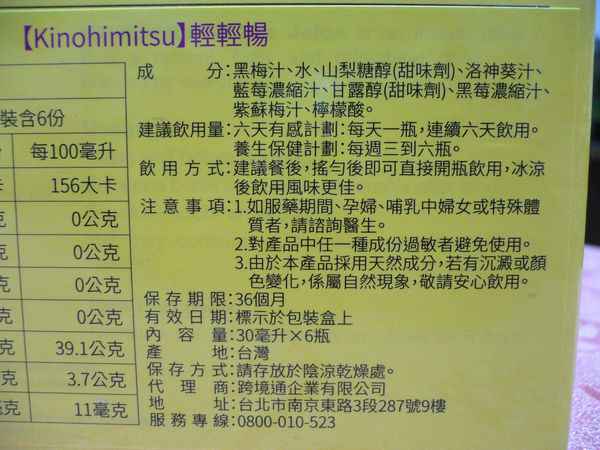 【Kinohimitsu】輕輕暢
裝含6份
每100毫升
156大卡
0公克
0公克
0公克
0公克
39.1公克
3.7公克
11毫克
成分:黑梅汁、水、山梨糖醇(甜味劑)、洛神葵汁、
藍莓濃縮汁、甘露醇(甜味劑)、黑莓濃縮汁、
紫蘇梅汁、檸檬酸。
建議飲用量:六天有感計劃:每天一瓶,連續六天飲用。
養生保健計劃:每週三到六瓶。
飲用方式:建議餐後,搖勻後即可直接開瓶飲用,冰涼
後飲用風味更佳。
注意事項:1.如服藥期間、孕婦、哺乳中婦女或特殊體
質者,請諮詢醫生。
2.對產品中任一種成份過敏者避免使用。
3.由於本產品採用天然成分,若有沉澱或顏
色變化,係屬自然現象,敬請安心飲用。
保存期限:36個月
有效日期:標示於包裝盒上
內容量:30毫升×6瓶
產地:台灣
保存方式:請存放於陰涼乾燥處。
代理商:跨境通企業有限公司
地址:台北市南京東路3段287號9樓
服務專線:0800-010-523